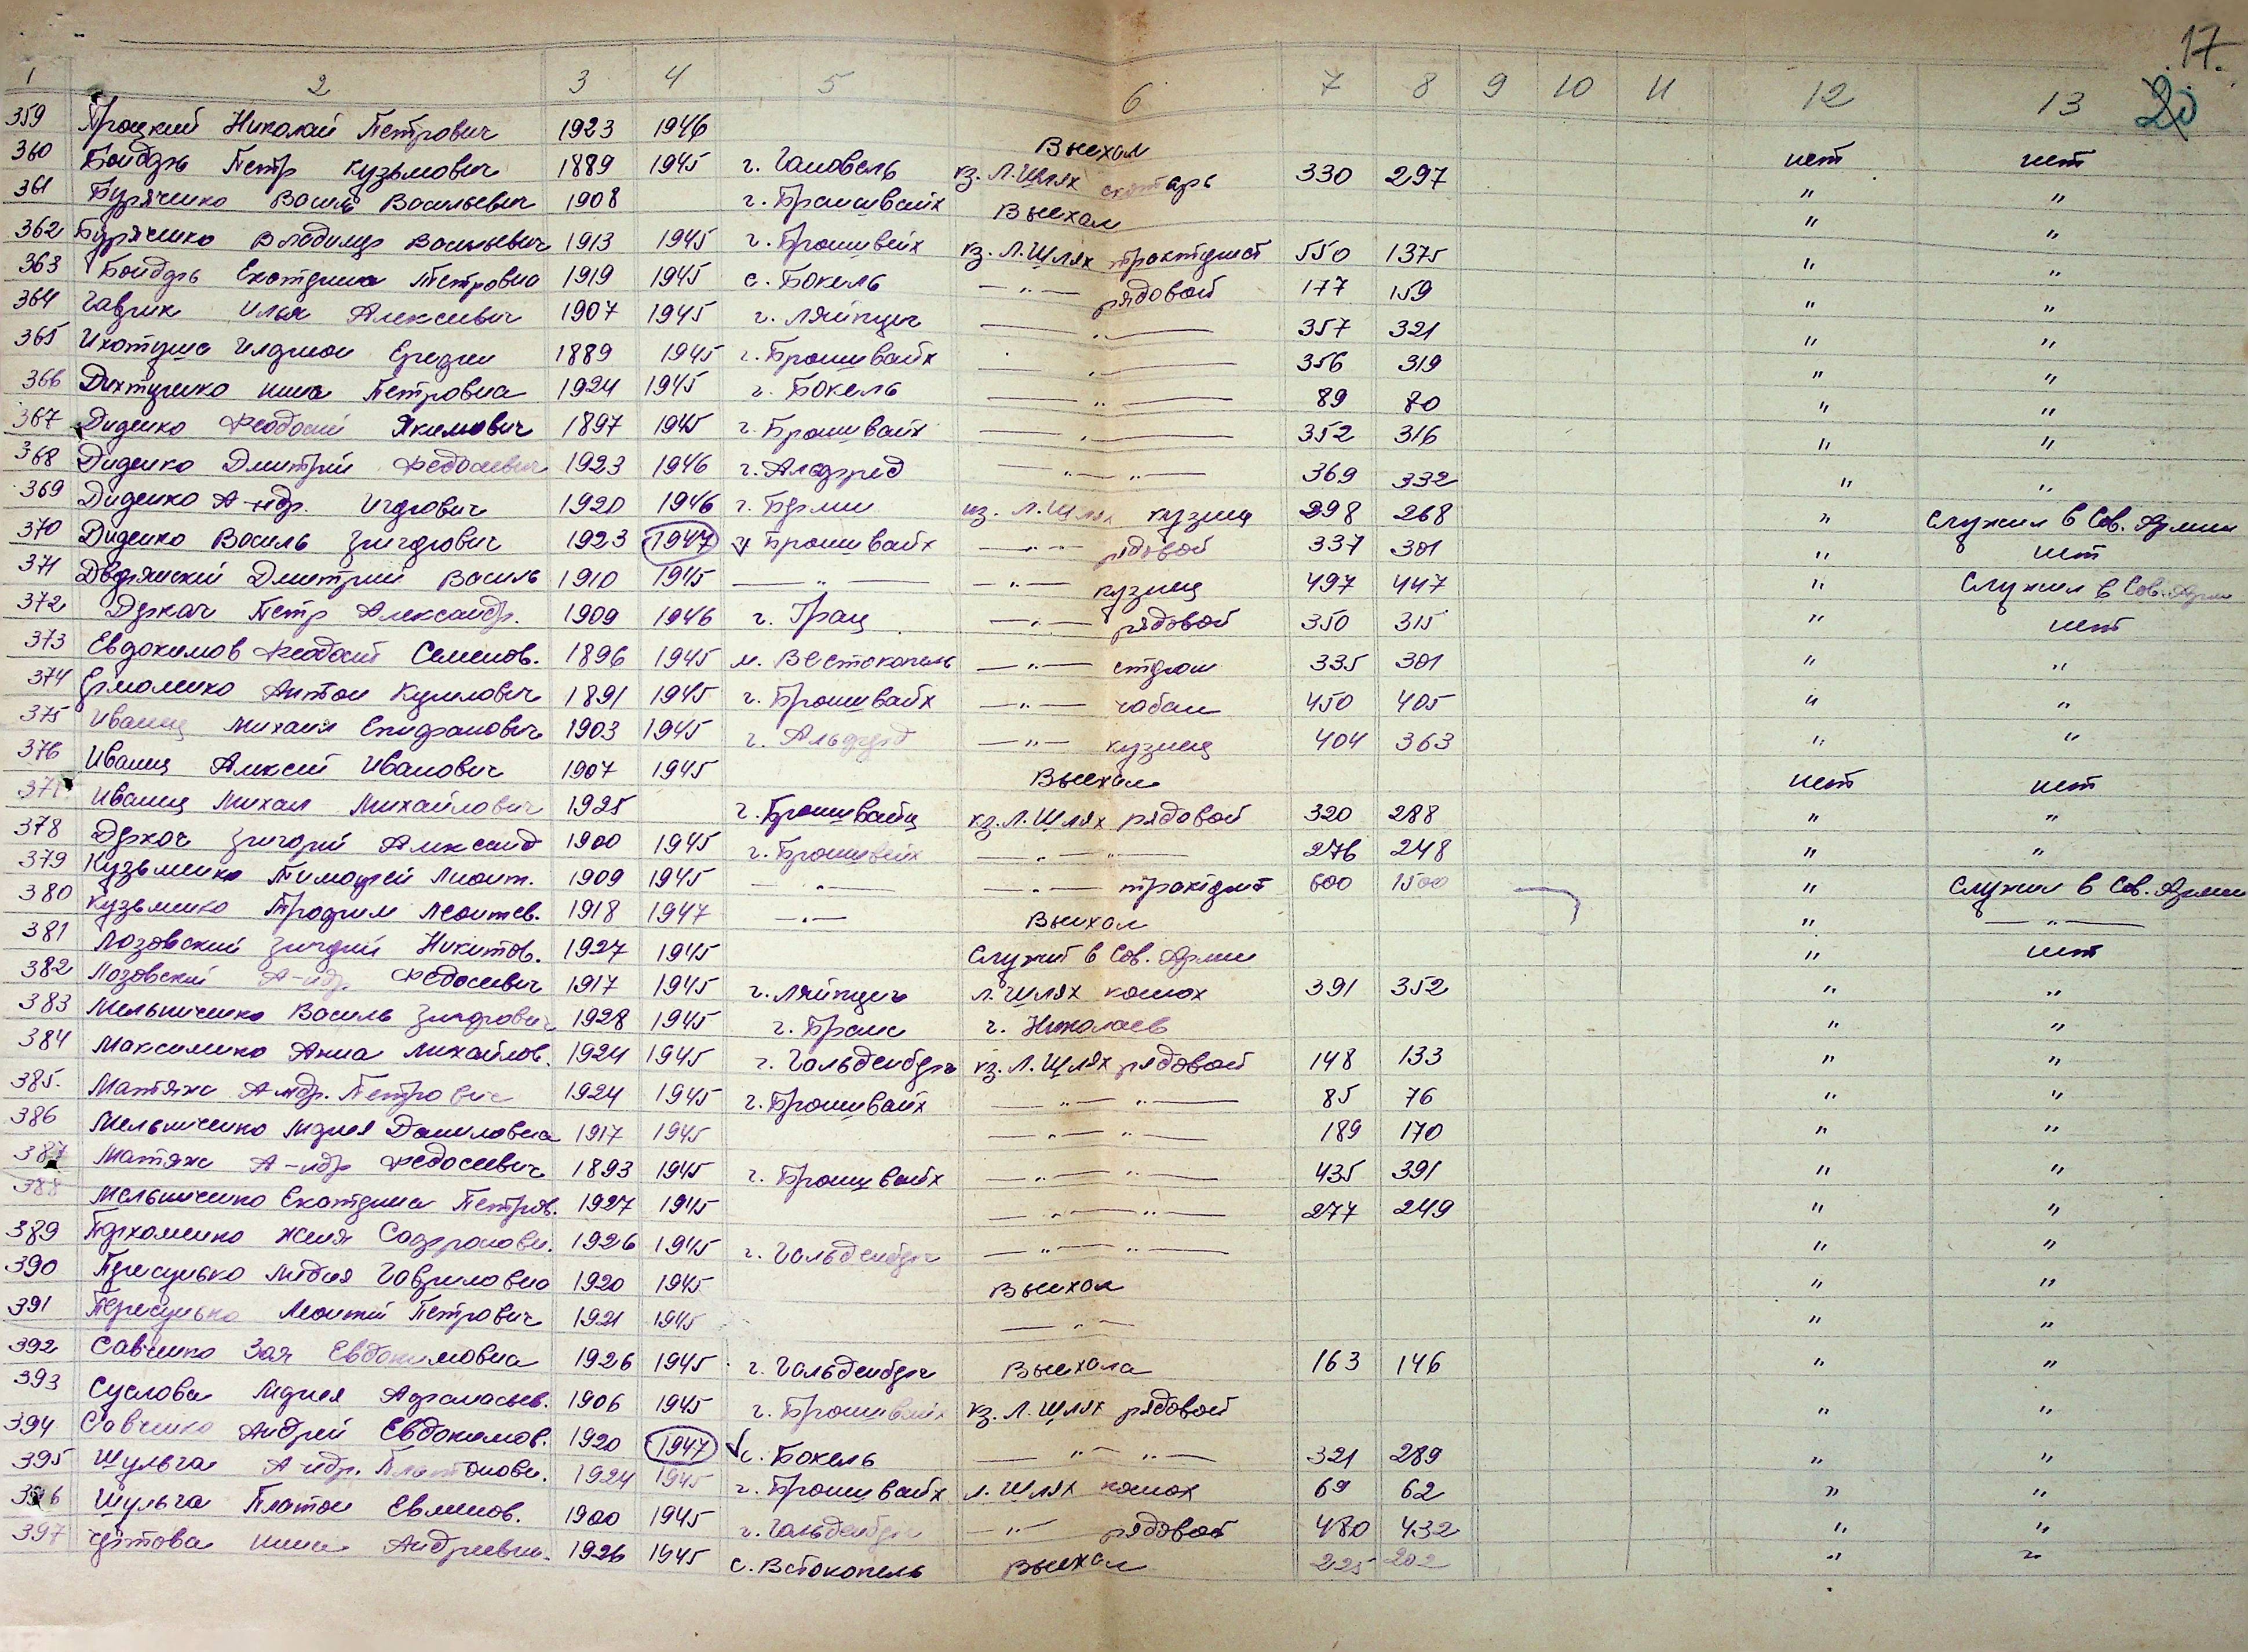 17.
20
1 2 3 4 5 6 7 8 9 10 11 12 13
359 Троцкий Николай Петрович 1923 1946 Выехал нет нет
360 Бондарь Петр Кузьмович 1889 1945 г. кз. Л.Шлях скотарь 330 297 " "
361 Буряченко Василь Васильевич 1908 г. Брашвайх Выехал " "
362 Буряченко Владимир Васильевич 1913 1945 г. Брошвейх кз. Л.Шлях тракторист 550 1375 " "
363 Бондарь Екатерина Петровна 1919 1945 с. Бокель —"— рядовой 177 159 " "
364 Гаврик Илья Алексеевич 1907 1945 г. Ляйпциг —"— 357 321 " "
365 1889 1945 г. Брошвайх —"— 356 319 " "
366 Дихтяренко Нина Петровна 1924 1945 г. Бокель —"— 89 80 " "
367 Диденко Феодосий Якимович 1897 1945 г. Брошвайх —"— 352 316 " "
368 Диденко Дмитрий Федосиевич 1923 1946 г. Альфред —"— "— 369 332 " "
369 Диденко А-ндр. Игорович 1920 1946 г. Берлин кз. Л.Шлях кузнец 298 268 " Служил в Сов. Армии
370 Диденко Василь Григорович 1923 1947 г Брошвайх —"— рядовой 337 301 " нет
371 Дворянский Дмитрий Василь 1910 1945 —"— —"— кузнец 497 447 " Служил в Сов. Арми
372 Деркач Петр Александр. 1909 1946 г. Грац —"— рядовой 350 315 " нет
373 Евдокимов Феодосий Семенов. 1896 1945 м. Вестокопель —"— 335 301 " "
374 Ермоленко Антон Курилович 1891 1945 г. Брошвайх —"— чабан 450 405 " "
375 Иванец Михаил Епифанович 1903 1945 г. Альфред —"— кузнец 404 363 " "
376 Иванец Алексей Иванович 1907 1945 Выехал нет нет
377 Иванец Михаил Михайлович 1925 г. Брошвайц кз. Л.Шлях рядовой 320 288 " "
378 Деркач Григорий Александ 1900 1945 г. Брошвейх —"— "— 276 248 " "
379 Кузьменко Тимофей Леонт. 1909 1945 —"— —"— тракторист 600 1500 " Служил в Сов. Армии
380 Кузьменко Трофим Леонтев. 1918 1947 —"— Выехал " —"—
381 Лозовский Григорий Никитов. 1927 1945 Служит в Сов. Армии " нет
382 Лозовский А-ндр. Федосиевич 1917 1945 г. Ляйпциг Л.Шлях конюх 391 352 " "
383 Мельниченко Василь Григорович 1928 1945 г. Николаев " "
384 Максименко Анна Михайлов. 1924 1945 г. Гольденберг кз. Л.Шлях рядовой 148 133 " "
385. Матяж А-ндр. Петрович 1924 1945 г. Брошвайх —"— "— 85 76 " "
386 Мельниченко Мария Даниловна 1917 1945 —"— "— 189 170 " "
387 Матяж А-ндр Федосиевич 1893 1945 г. Брошвайх —"— "— 435 391 " "
388 Мельниченко Екатерина Петров. 1927 1945 —"— "— 277 249 " "
389 Пархоменко Женя Софронови. 1926 1945 г. Гольденберг —"— "— " "
390 Пересунько Лидия Гавриловна 1920 1945 Выехал " "
391 Пересунько Леонтий Петрович 1921 1945 —"— " "
392 Савченко Зоя Евдокимовна 1926 1945 г. Гольденберг Выехала 163 146 " "
393 Суслова Мария Афанасьев. 1906 1945 г. Брошвайх кз. Л.Шлях рядовой " "
394 Савченко Андрей Евдокимов. 1920 1947 с. Бокель —"— "— 321 289 " "
395 Шульга А-ндр. Платонови. 1924 1945 г. Брошвайх Л.Шлях конюх 69 62 " "
396 Шульга Платон Евменов. 1900 1945 г. Гольденберг —"— рядовой 480 432 " "
397 Нина Андреевна. 1926 1945 с. Встокопель Выехал 225 202 " "